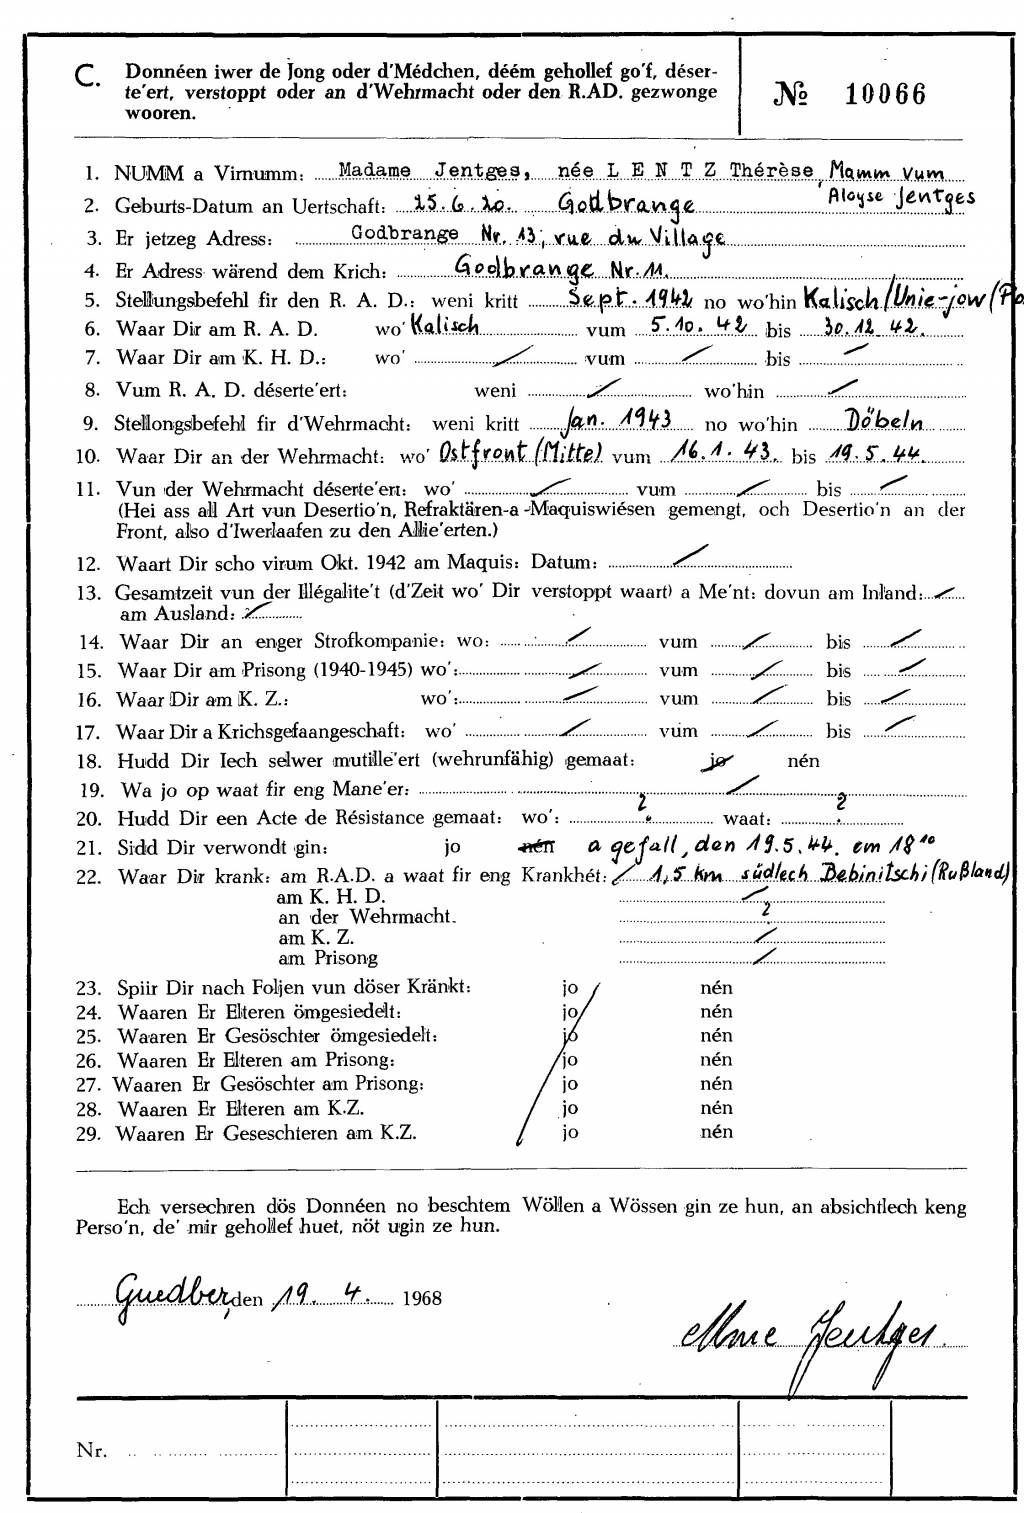 C. Donnéen iwer de Jong oder d'Médchen, déém gehollef go'f, déser-
te'ert, verstoppt oder an d'Wehrmacht oder den R.AD. gezwonge
wooren.
№ 10066
1. NUMM a Virnumm: Madame Jentges, née L E N T Z Thérèse, Mamm vum
Aloyse Jentges
2. Geburts-Datum an Uertschaft: 25.6.20. Godbrange
3. Er jetzeg Adress: Godbrange Nr. 13, rue du Village
4. Er Adress wärend dem Krich: Godbrange Nr. 11.
5. Stellungsbefehl fir den R. A. D.: weni kritt Sept. 1942 no wo'hin Kalisch/Unie-jow/Po
6. Waar Dir am R. A. D. wo' Kalisch vum 5.10.42 bis 30.12.42.
7. Waar Dir am K. H. D.: wo' / vum / bis /
8. Vum R. A. D. déserte'ert: weni / wo'hin /
9. Stellongsbefehl fir d'Wehrmacht: weni kritt Jan. 1943 no wo'hin Döbeln
10. Waar Dir an der Wehrmacht: wo' Ostfront (Mitte) vum 16.1.43. bis 19.5.44.
11. Vun der Wehrmacht déserte'ert: wo' / vum / bis /
(Hei ass all Art vun Desertio'n, Refraktären-a-Maquiswiésen gemengt, och Desertio'n an der
Front, also d'Iwerlaafen zu den Allie'erten.)
12. Waart Dir scho virum Okt. 1942 am Maquis: Datum: /
13. Gesamtzeit vun der Illégalite't (d'Zeit wo' Dir verstoppt waart) a Me'nt: dovun am Inland: /
am Ausland: /
14. Waar Dir an enger Strofkompanie: wo: / vum / bis /
15. Waar Dir am Prisong (1940-1945) wo': / vum / bis /
16. Waar Dir am K. Z.: wo': / vum / bis /
17. Waar Dir a Krichsgefaangeschaft: wo' / vum / bis /
18. Hudd Dir Iech selwer mutille'ert (wehrunfähig) gemaat: jo nén
19. Wa jo op waat fir eng Mane'er: /
20. Hudd Dir een Acte de Résistance gemaat: wo': ? waat: ?
21. Sidd Dir verwondt gin: jo nén a gefall, den 19.5.44. em 18¹⁰
22. Waar Dir krank: am R.A.D. a waat fir eng Krankhét: / 1,5 km südlech Debinitschi (Rußland)
am K. H. D. /
an der Wehrmacht. ?
am K. Z. /
am Prisong /
23. Spiir Dir nach Foljen vun döser Kränkt: jo nén
24. Waaren Er Elteren ömgesiedelt: jo nén
25. Waaren Er Gesöschter ömgesiedelt: jo nén
26. Waaren Er Elteren am Prisong: jo nén
27. Waaren Er Gesöschter am Prisong: jo nén
28. Waaren Er Elteren am K.Z. jo nén
29. Waaren Er Geseschteren am K.Z. jo nén
Ech versechren dös Donnéen no beschtem Wöllen a Wössen gin ze hun, an absichtlech keng
Perso'n, de' mir gehollef huet, nöt ugin ze hun.
Guedber, den 19. 4. 1968
Mme Jentges
Nr.